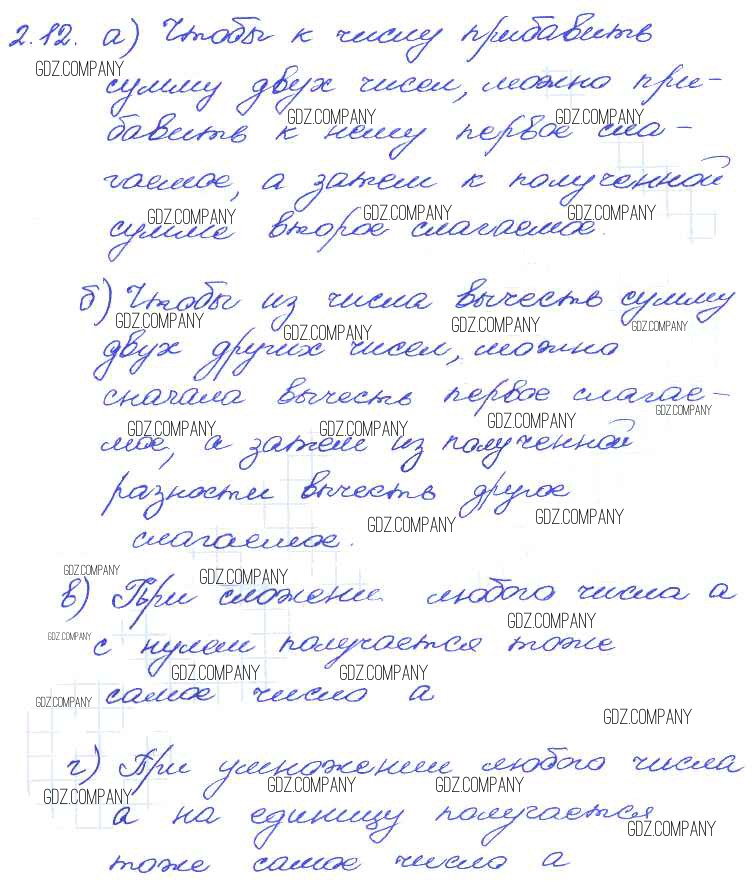 2.12. а) Чтобы к числу прибавить
GDZ.COMPANY
сумму двух чисел, можно при-
GDZ.COMPANY GDZ.COMPANY
бавить к нему первое сла-
гаемое, а затем к полученной
GDZ.COMPANY GDZ.COMPANY GDZ.COMPANY
сумме второе слагаемое.
б) Чтобы из числа вычесть сумму
GDZ.COMPANY GDZ.COMPANY GDZ.COMPANY GDZ.COMPANY
двух других чисел, можно
сначала вычесть первое слагае-
GDZ.COMPANY GDZ.COMPANY GDZ.COMPANY GDZ.COMPANY
мое, а затем из полученной
разности вычесть другое
GDZ.COMPANY GDZ.COMPANY
слагаемое.
GDZ.COMPANY GDZ.COMPANY
в) При сложении любого числа а
GDZ.COMPANY GDZ.COMPANY
с нулем получается тоже
GDZ.COMPANY GDZ.COMPANY
самое число а
GDZ.COMPANY GDZ.COMPANY
г) При умножении любого числа
GDZ.COMPANY GDZ.COMPANY GDZ.COMPANY
а на единицу получается
GDZ.COMPANY
тоже самое число а